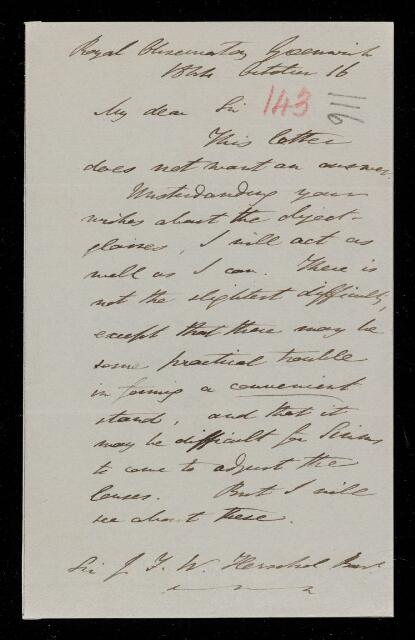 Royal Observatory Greenwich
1844 October 16
My dear Sir 143 116
This letter
does not want an answer.
Understanding your
wishes about the object-
glasses, I will act as
well as I can. There is
not the slightest difficulty,
except that there may be
some practical trouble
in forming a convenient
stand, and that it
may be difficult for Simms
to come to adjust the
lenses. But I will
see about these.
Sir J. F. W. Herschel Bart